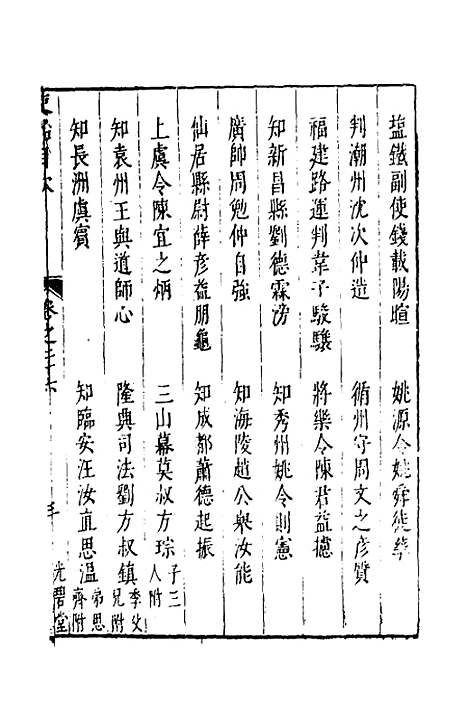 塩鐵副使錢載陽暄　姚源令姚舜徒
判潮州沈次仲造　循州守周文之彦質
福建路運判葦子駿驤　將樂令陳君益攄
知新昌縣劉德霖滂　知秀州姚令則憲
廣帥周勉仲自強　知海陵趙公舉汝能
仙居縣尉薛彦益朋龜　知成都蕭德起振
上虞令陳宜之炳　三山幕莫叔方琮子三人附
知袁州王與道師心　隆典司法劉方叔鎮季父兄附
知長洲虞賓　知臨安汪汝直思温弟思齊附
卷之三十六
光碧堂